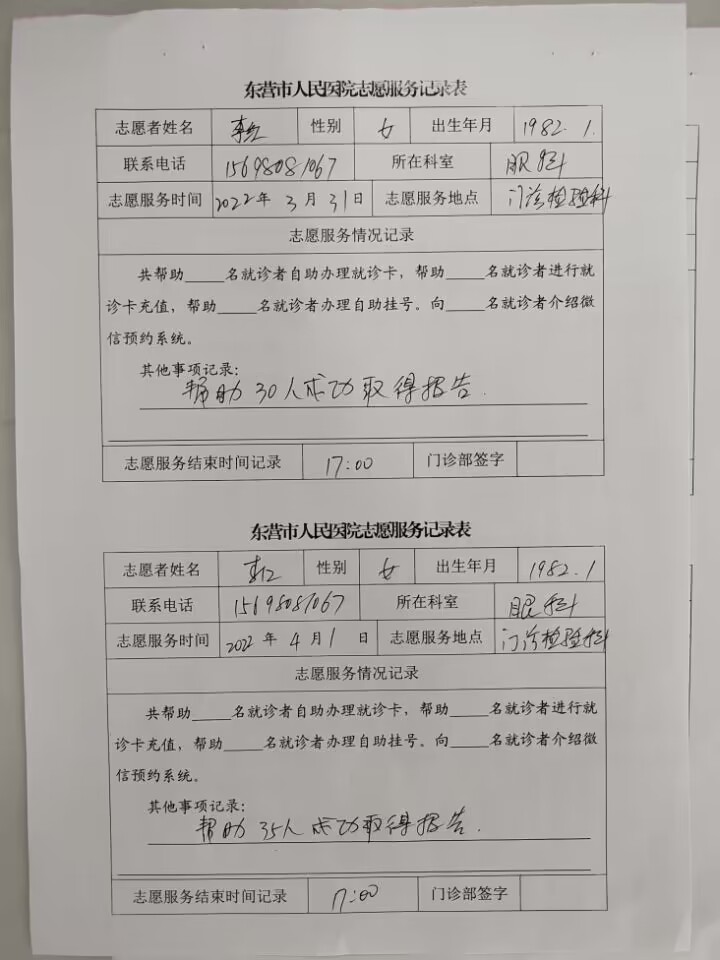 东营市人民医院志愿服务记录表
志愿者姓名 李红 性别 女 出生年月 1982.1.
联系电话 15698081067 所在科室 眼科
志愿服务时间 2022年3月31日 志愿服务地点 门诊检验科
志愿服务情况记录
共帮助_____名就诊者自助办理就诊卡，帮助_____名就诊者进行就
诊卡充值，帮助_____名就诊者办理自助挂号。向_____名就诊者介绍微
信预约系统。
其他事项记录：
帮助30人成功取得报告.
志愿服务结束时间记录 17:00 门诊部签字
东营市人民医院志愿服务记录表
志愿者姓名 李红 性别 女 出生年月 1982.1
联系电话 15698081067 所在科室 眼科
志愿服务时间 2022年4月1日 志愿服务地点 门诊检验科
志愿服务情况记录
共帮助_____名就诊者自助办理就诊卡，帮助_____名就诊者进行就
诊卡充值，帮助_____名就诊者办理自助挂号。向_____名就诊者介绍微
信预约系统。
其他事项记录：
帮助35人成功取得报告.
志愿服务结束时间记录 17:00 门诊部签字